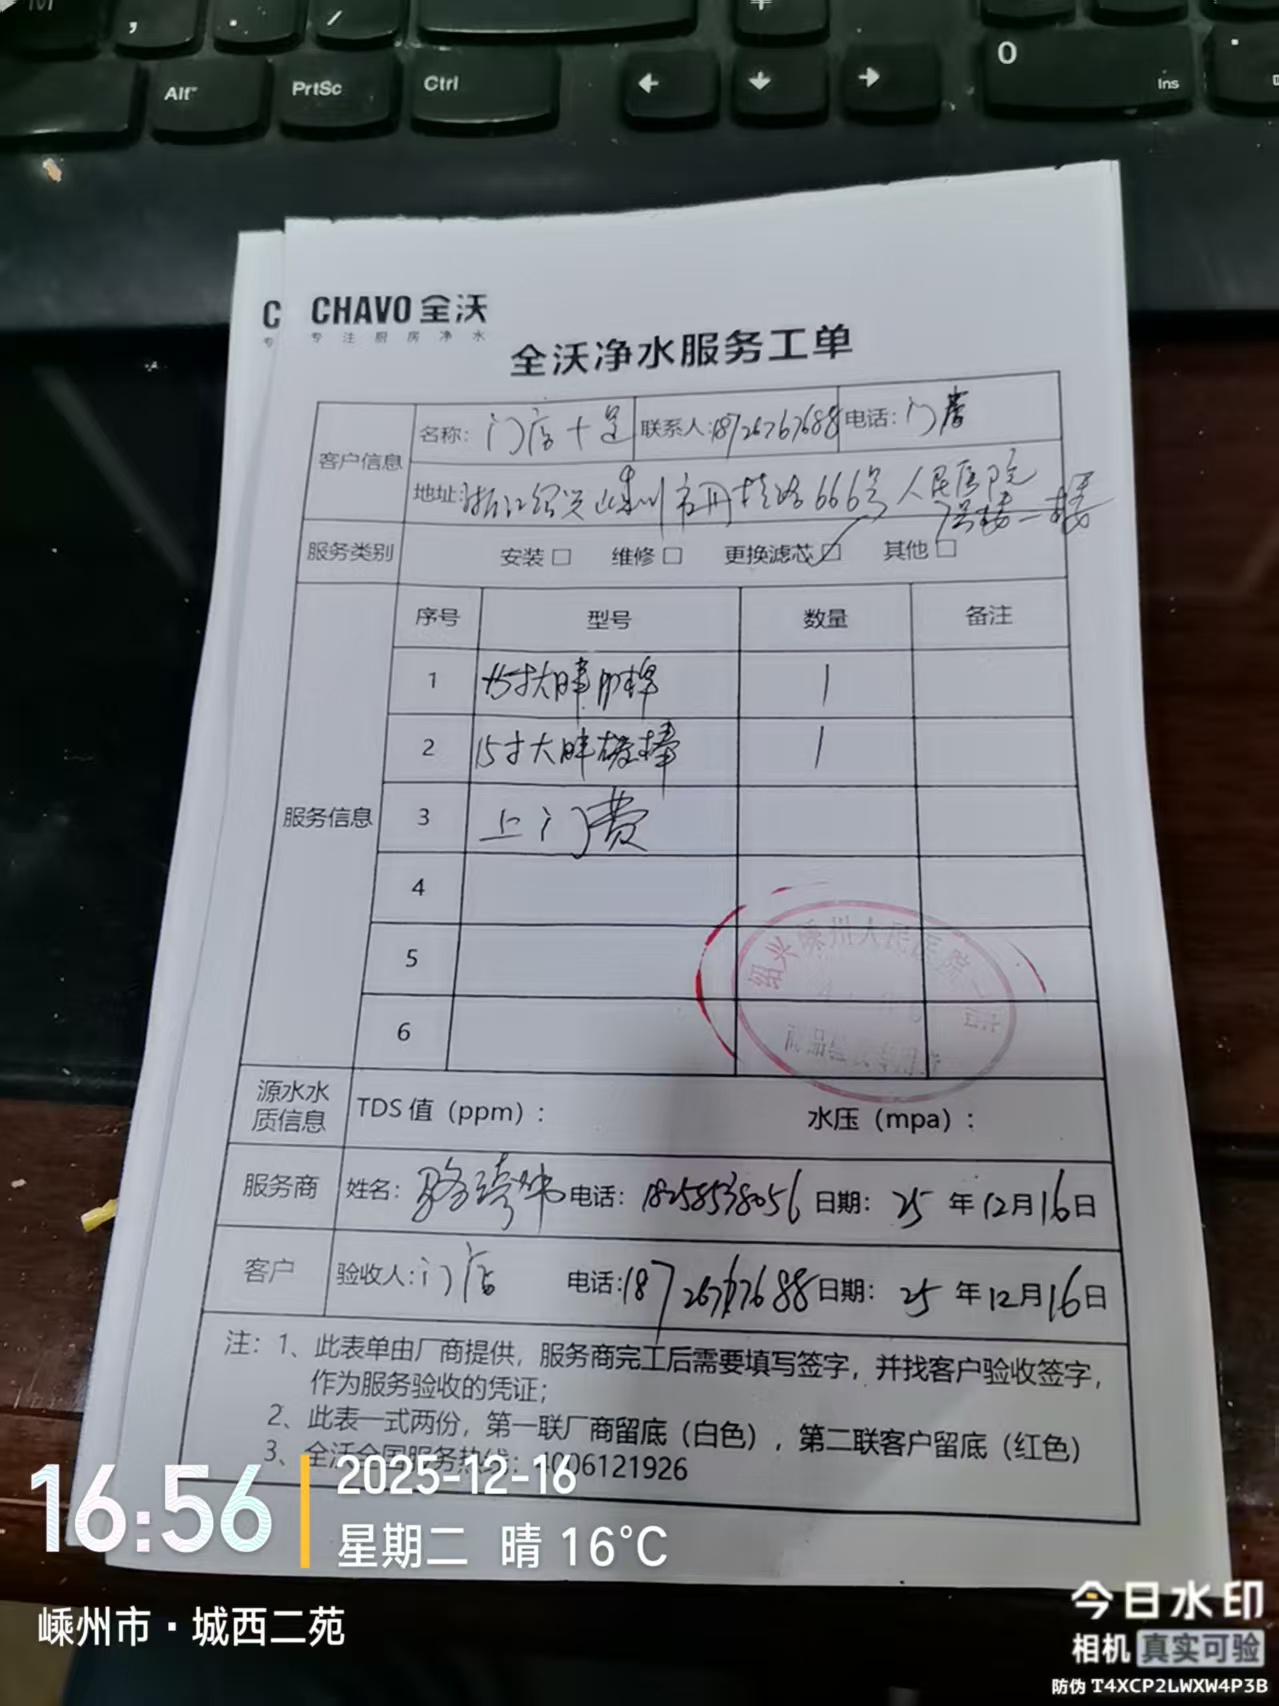 Alt
PrtSc
Ctrl
0
Ins
CHAVO 全沃
专注厨房净水
全沃净水服务工单
客户信息
名称: 门店十足 联系人:18726767688 电话: 门店
地址:浙江绍兴嵊州市丹桂路666号人民医院
7号楼一楼
服务类别 安装□ 维修□ 更换滤芯□ 其他□
服务信息
序号 型号 数量 备注
1 15寸大胖 1
2 15寸大胖碳棒 1
3 上门费
4
5
6
绍兴嵊州人民医院
商品验收专用章
源水水质信息 TDS 值（ppm）: 水压（mpa）:
服务商 姓名: 电话: 18258538056 日期: 25 年12月16日
客户 验收人: 门店 电话:18726767688 日期: 25 年12月16日
注: 1、此表单由厂商提供，服务商完工后需要填写签字，并找客户验收签字，
作为服务验收的凭证;
2、此表一式两份，第一联厂商留底（白色），第二联客户留底（红色）
3、全沃全国服务热线: 4006121926
16:56
2025-12-16
星期二 晴 16°C
嵊州市·城西二苑
今日水印
相机 真实可验
防伪 T4XCP2LWXW4P3B